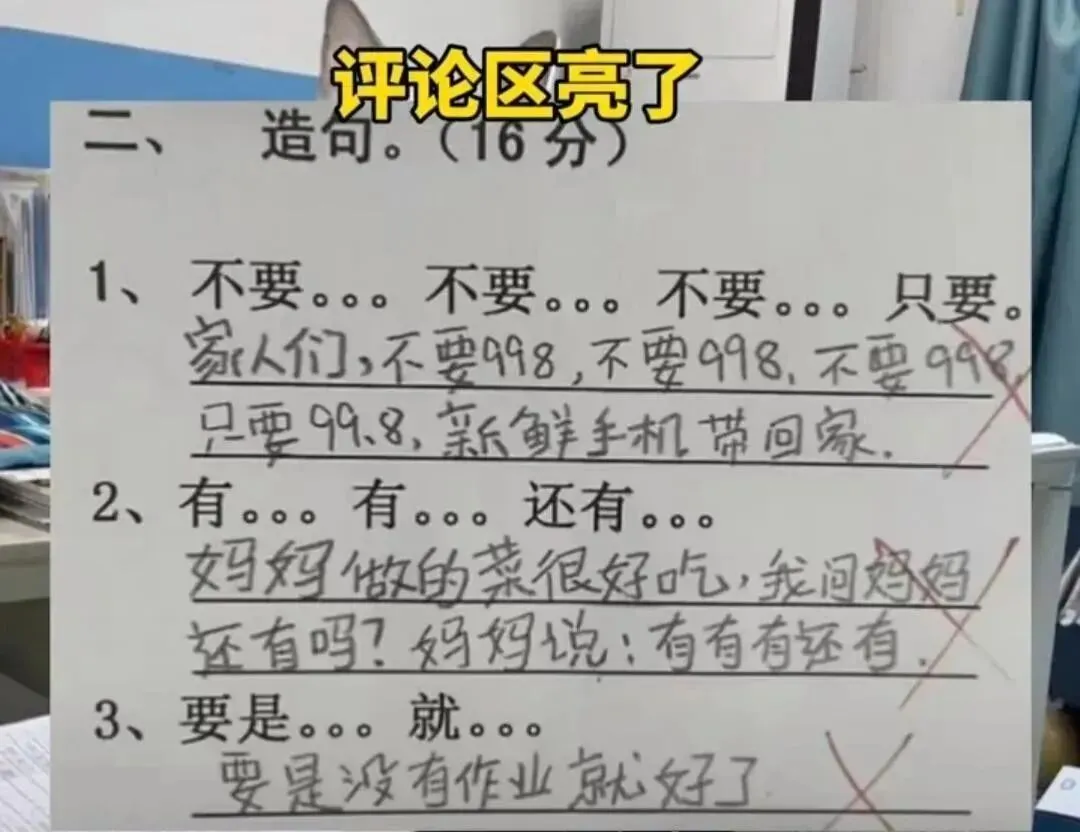 评论区亮了
二、 造句。（16 分）
1、 不要。。。 不要。。。 不要。。。 只要。
家人们，不要998，不要998、不要998
只要99.8，新鲜手机带回家.
2、有。。。有。。。还有。。。
妈妈做的菜很好吃，我问妈妈
还有吗？妈妈说：有有有还有.
3、要是。。。就。。。
要是没有作业就好了.